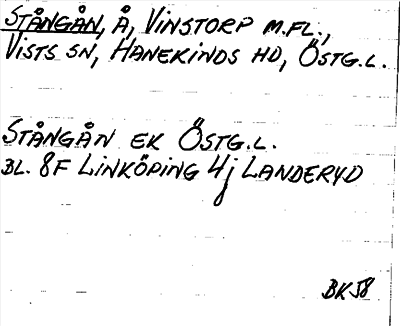 STÅNGÅN, Å, VINSTORP M.FL.,
VISTS SN, HANEKINDS HD, ÖSTG.L.
STÅNGÅN EK ÖSTG.L.
BL. 8F LINKÖPING 4j LANDERYD
BK58